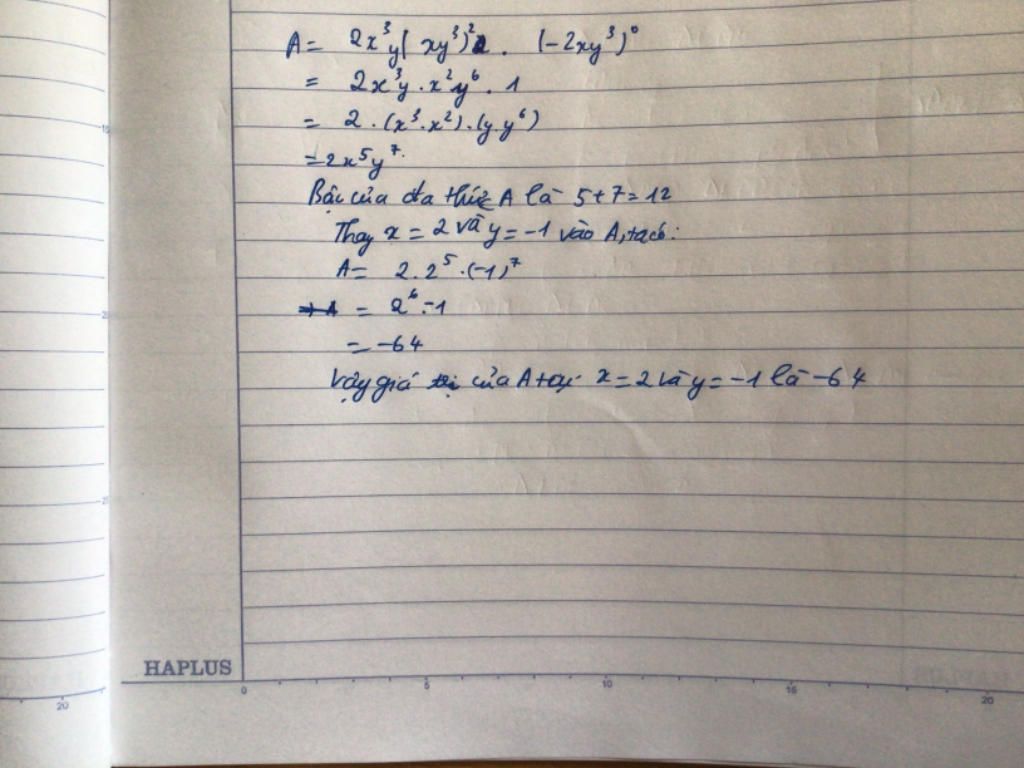 A = 2x³y(xy³)² . (-2xy³)⁰
= 2x³y . x²y⁶ . 1
= 2 . (x³.x²) . (y.y⁶)
= 2x⁵y⁷.
Bậc của đa thức A là 5+7=12
Thay x = 2 và y = -1 vào A, ta có:
A = 2.2⁵.(-1)⁷
= 2⁶.-1
= -64
Vậy giá trị của A tại x = 2 và y = -1 là -64
HAPLUS
0 5 10 15 20
20